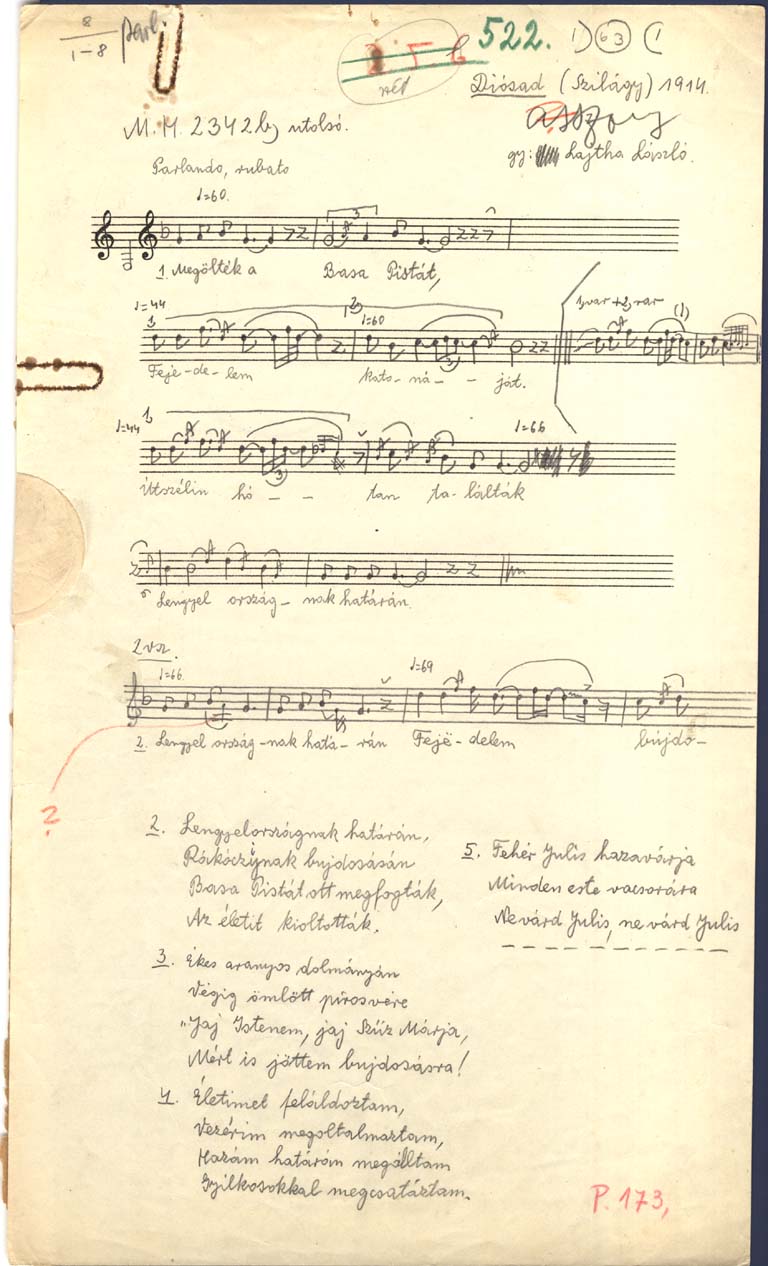 8
1-8
parl.
522. 1) 63 (1
Diósad (Szilágy) 1914.
M. H. 2342b) utolsó.
asszony
gy: Lajtha László.
Parlando, rubato
♩=60.
3
1. Megölték a Basa Pistát,
♩=44 1) 2) ♩=60 1) var + 2) var (1)
3
Feje-de-lem kato-ná- - ját.
♩=44 1) ♩=66
3
Útszélin hó - - tan ta-lálták
Lengyelország-nak határán.
2 vsz.
♩=66. ♩=69
2. Lengyel ország-nak hatá-rán Fejë-delem bújdo-
?
2. Lengyelországnak határán,
Rákóczinak bujdosásán
Basa Pistát ott megfogták,
Az életit kioltották.
3. Ékes aranyos dolmányán
Végig ömlött pirosvére
"Jaj Istenem, jaj Szűz Márja,
Mért is jöttem bujdosásra!
4. Életimet feláldoztam,
Vezérim megoltalmaztam,
Hazám határán megálltam
Gyilkosokkal megcsatáztam.
5. Fehér Julis hazavárja
Minden este vacsorára
Ne várd Julis, ne várd Julis
P. 173,